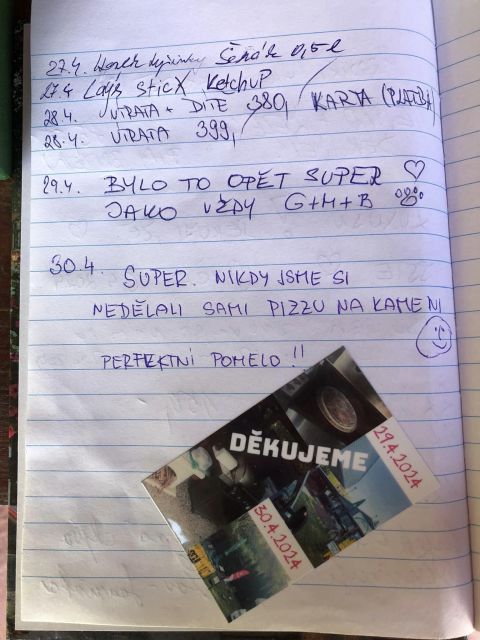 27.4. Horek dýňový Šenák 0,5 l
27.4 Lays sticX Ketchup
28.4. ÚTRATA + DÍTĚ 380,/ KARTA (PLATBA)
28.4. ÚTRATA 399,/
29.4. BYLO TO OPĚT SUPER ♡
JAKO VŽDY G+M+B
30.4. SUPER. NIKDY JSME SI
NEDĚLALI SAMI PIZZU NA KAMENI
PERFEKTNÍ POMELO !!
DĚKUJEME
29.4.2024
30.4.2024